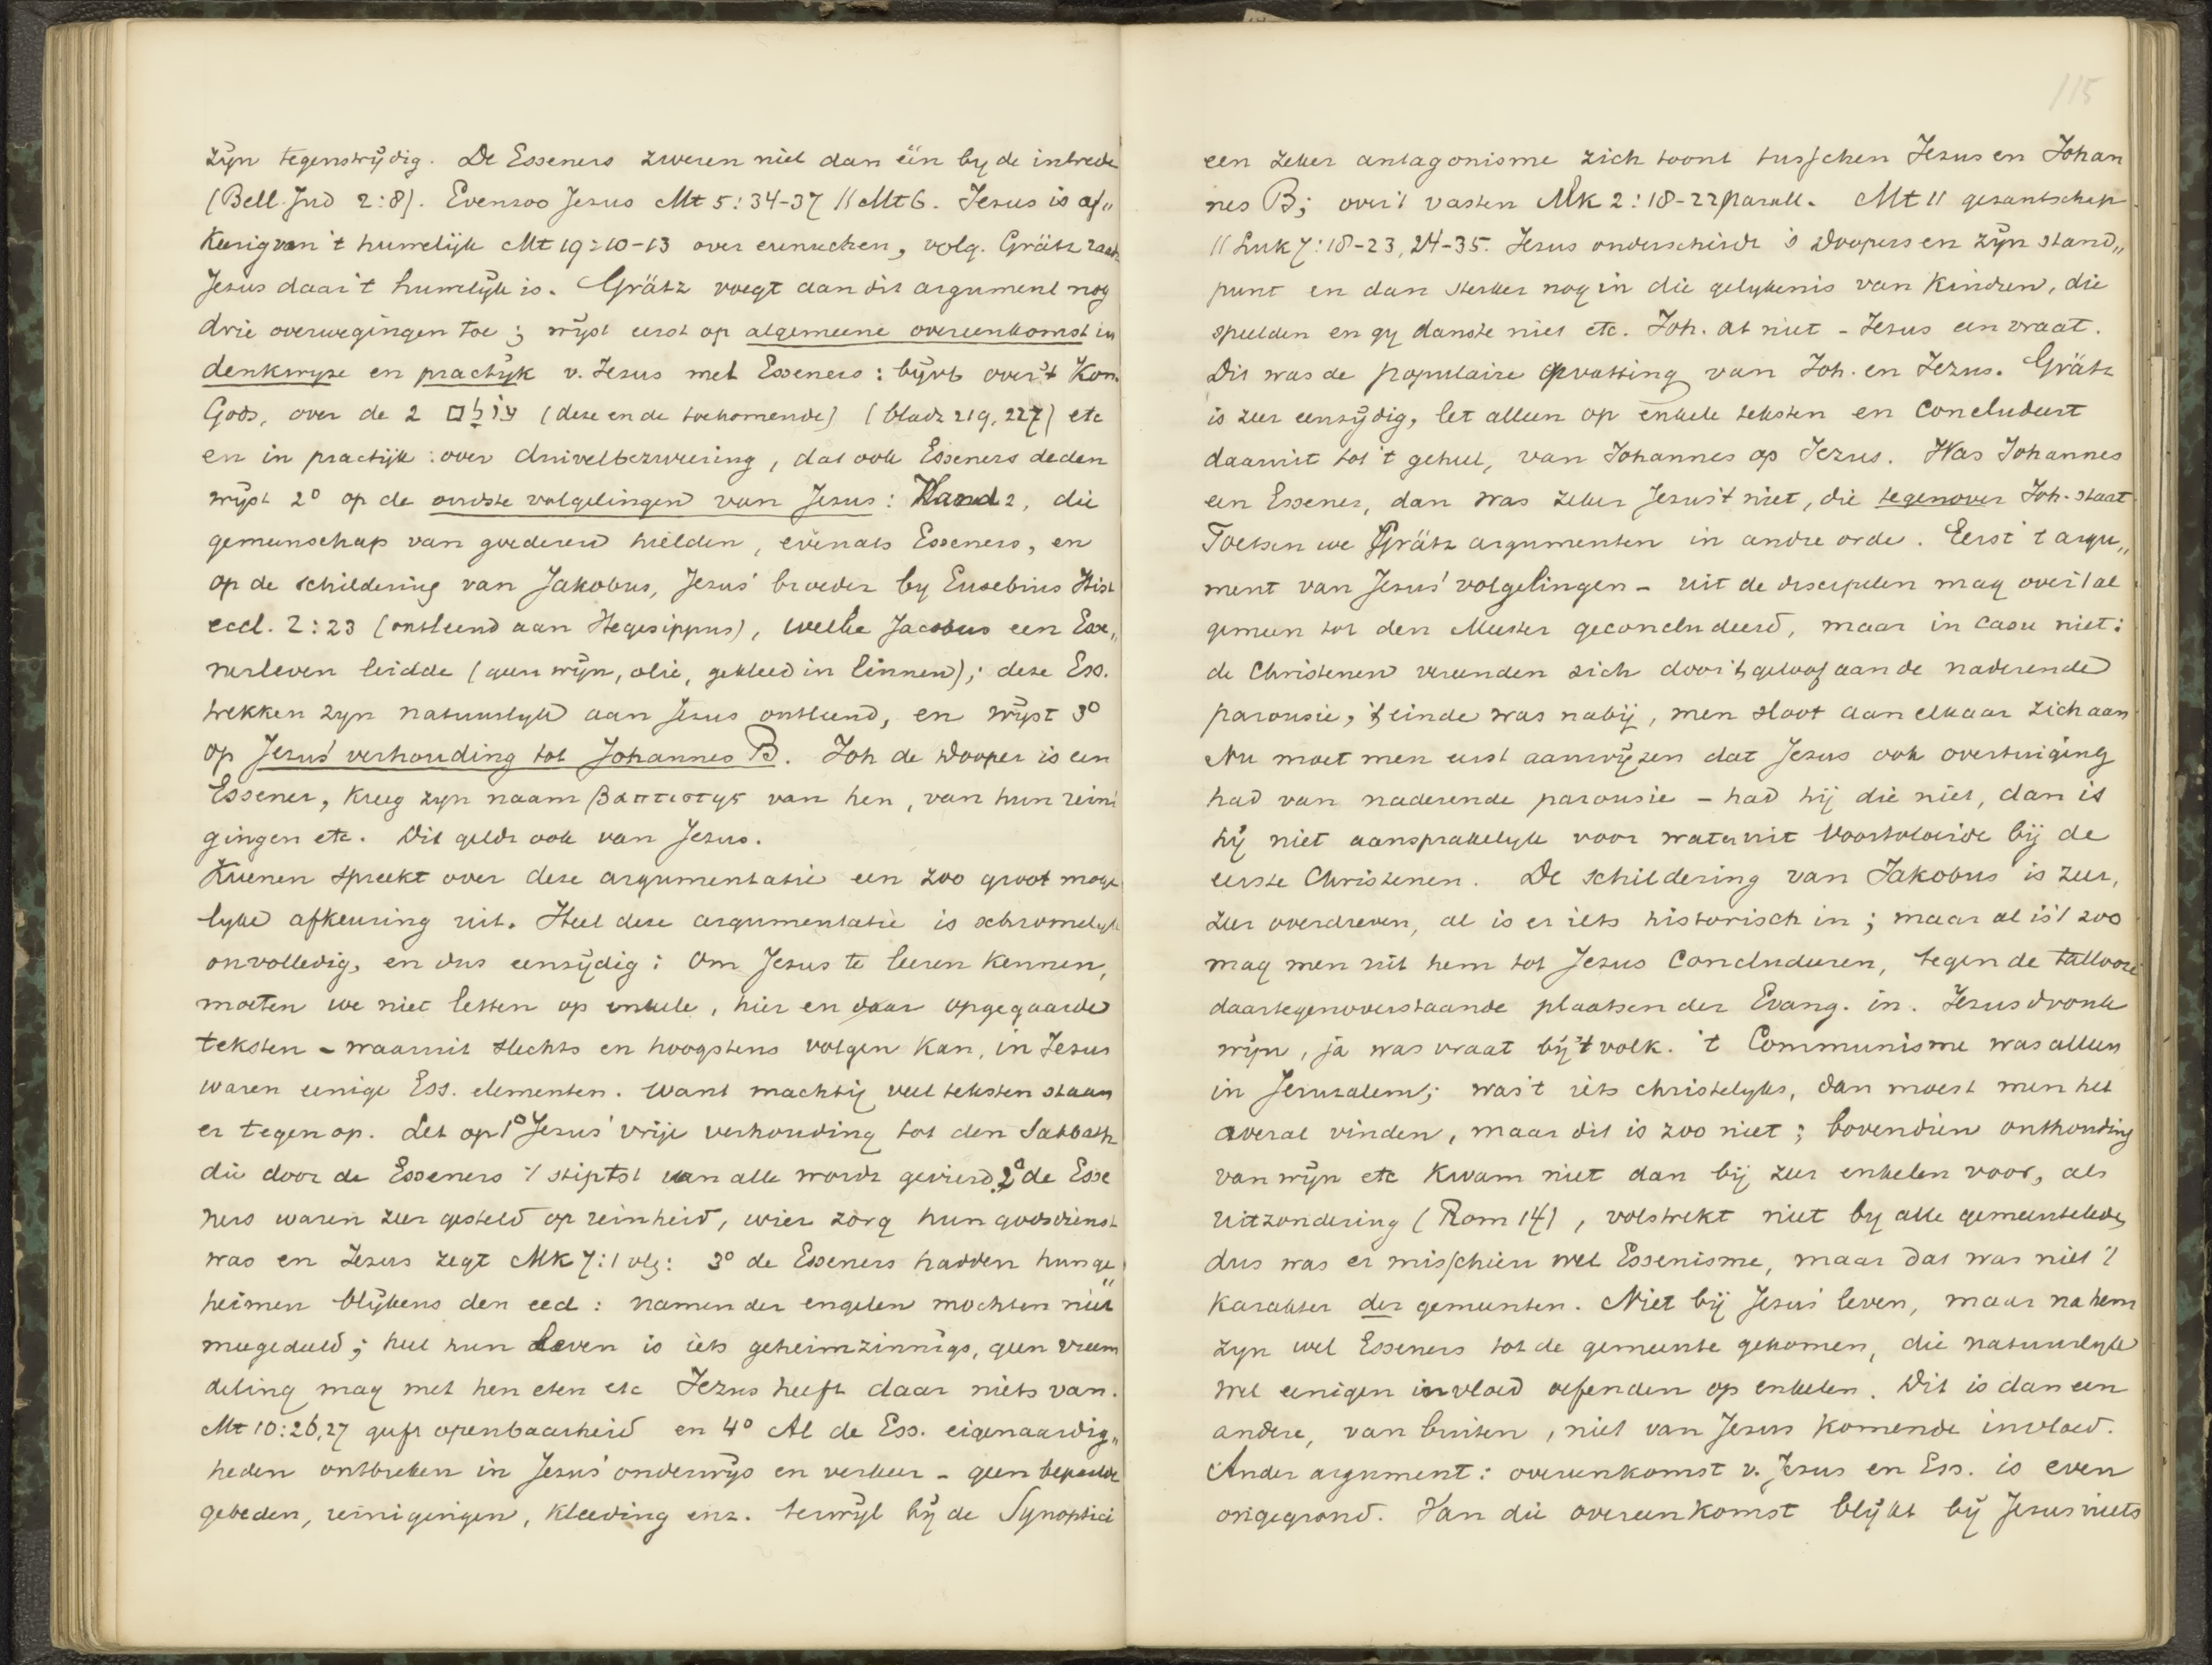 zijn tegenstrijdig. De Esseners zweren niet dan één by de intrede
(Bell. Jud 2:8). Evenzoo Jezus Mt 5:34-37 // Mt 6. Jezus is af„
keerig van 't huwelijk Mt 19:10-13 over eunuchen, volg. Grätz raadt
Jezus daar 't huwelijk is. Grätz voegt aan dit argument nog
drie overwegingen toe; wijst eerst op algemeene overeenkomst in
denkwyze en practijk v. Jezus met Esseners: bijvb over 't Kon.
Gods, over de 2 עולם (deze en de toekomende) (bladz 219, 227) etc
en in practijk: over duivelbezweering, dat ook Esseners deden
wijst 2° op de oudste volgelingen van Jezus: Hand 2, die
gemeenschap van goederen hielden, evenals Esseners, en
op de schildering van Jakobus, Jezus' broeder by Eusebius Hist
eccl. 2:23 (ontleend aan Hegesippus), welke Jacobus een Esse„
nerleven leidde (geen wijn, olie, gekleed in linnen); deze Ess.
trekken zyn natuurlyk aan Jezus ontleend, en wijst 3°
op Jezus' verhouding tot Johannes B. Joh de Dooper is een
Essener, kreeg zyn naam βαπτιστης van hen, van hun reini
gingen etc. Dit geldt ook van Jezus.
Kuenen spreekt over deze argumentatie een zoo groot moge
lyke afkeuring uit. Heel deze argumentatie is schromelyk
onvolledig, en dus eenzijdig: Om Jezus te leeren kennen,
moeten we niet letten op enkele, hier en daar opgegaarde
teksten - waaruit slechts en hoogstens volgen kan, in Jezus
waren eenige Ess. elementen. Want machtig veel teksten staan
er tegen op. Let op 1° Jezus' vrije verhouding tot den Sabbath
die door de Esseners 't stiptst van alle wordt gevierd, 2° de Esse
ners waren zeer gesteld op reinheid, wier zorg hun godsdienst
was en Jezus zegt Mk 7:1 vlg: 3° de Esseners hadden hun ge„
heimen blijkens den eed: namen der engelen mochten niet
meegedeeld; heel hun leven is iets geheimzinnigs, geen vreem
deling mag met hen eten etc Jezus heeft daar niets van.
Mt 10:26,27 geeft openbaarheid en 4° Al de Ess. eigenaardig„
heden ontbreken in Jezus' onderwijs en verkeer - geen bepaalde
gebeden, reinigingen, kleeding enz. terwijl bij de Synoptici
115
een zeker antagonisme zich toont tusschen Jezus en Johan
nes B; over 't vasten Mk 2:18-22 parall. Mt 11 gezantschap
// Luk 7:18-23, 24-35. Jezus onderscheidt 's Doopers en zijn stand„
punt en dan sterker nog in die gelykenis van kinderen, die
speelden en gy danste niet etc. Joh. at niet - Jezus een vraat.
Dit was de populaire opvatting van Joh. en Jezus. Grätz
is zeer eenzijdig, let alleen op enkele teksten en concludeert
daaruit tot 't geheel, van Johannes op Jezus. Was Johannes
een Essener, dan was zeker Jezus 't niet, die tegenover Joh. staat
Toetsen we Grätz argumenten in andre orde. Eerst 't argu„
ment van Jezus' volgelingen - uit de discipelen mag over 't al
gemeen tot den Meester geconcludeerd, maar in casu niet:
de Christenen vereenden zich door 't geloof aan de naderende
parousie, 't einde was nabij, men sloot aan elkaar zich aan
Nu moet men eerst aanwijzen dat Jezus ook overtuiging
had van naderende parousie - had hij die niet, dan is
hij niet aansprakelyk voor wat er uit voortvloeide bij de
eerste Christenen. De schildering van Jakobus is zeer,
zeer overdreven, al is er iets historisch in; maar al is 't zoo
mag men uit hem tot Jezus concluderen, tegen de talloze
daartegenoverstaande plaatsen der Evang. in. Jezus dronk
wijn, ja was vraat bij 't volk. 't Communisme was alleen
in Jeruzalem; was 't iets christelyks, dan moest men het
overal vinden, maar dit is zoo niet; bovendien onthouding
van wijn etc kwam niet dan bij zeer enkelen voor, als
uitzondering (Rom 14), volstrekt niet by alle gemeenteleden
dus was er misschien wel Essenisme, maar dat was niet 't
karakter der gemeenten. Niet bij Jezus' leven, maar na hem
zyn wel Esseners tot de gemeente gekomen, die natuurlyk
wel eenigen invloed oefenden op enkelen. Dit is dan een
andere, van buiten, niet van Jezus komende invloed.
Ander argument: overeenkomst v. Jezus en Ess. is even
ongegrond. Van die overeenkomst blijkt bij Jezus niets